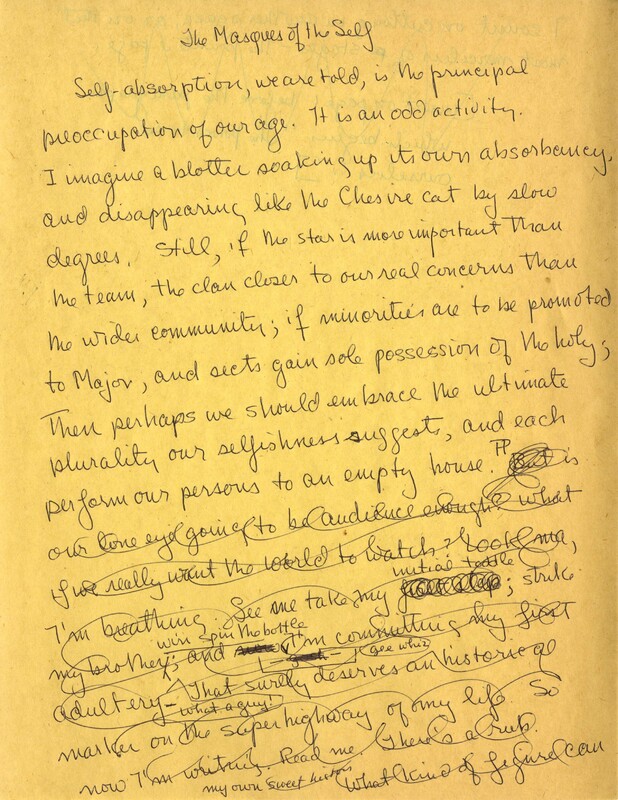 The Masques of the Self
Self-absorption, we are told, is the principal
preoccupation of our age. It is an odd activity.
I imagine a blotter soaking up its own absorbancy,
and disappearing like the Chesire cat by slow
degrees. Still, if the star is more important than
the team, the clan closer to our real concerns than
the wider community; if minorities are to be promoted
to Major, and sects gain sole possession of the holy;
Then perhaps we should embrace the ultimate
plurality our selfishness suggests, and each
perform our persons to an empty house. PP But is
our lone eye going to be audience enough? what
if we really want the world to watch? Look ma,
initial toddle
I'm breathing. See me take my ; strike
win spin the bottle
my brother; and I'm committing my first
gee whiz
adultery— That surely deserves an historical
what a guy!
marker on the superhighway of my life. So
now I'm writing. Read me. There's a rub.
my own sweet history What kind of figure can